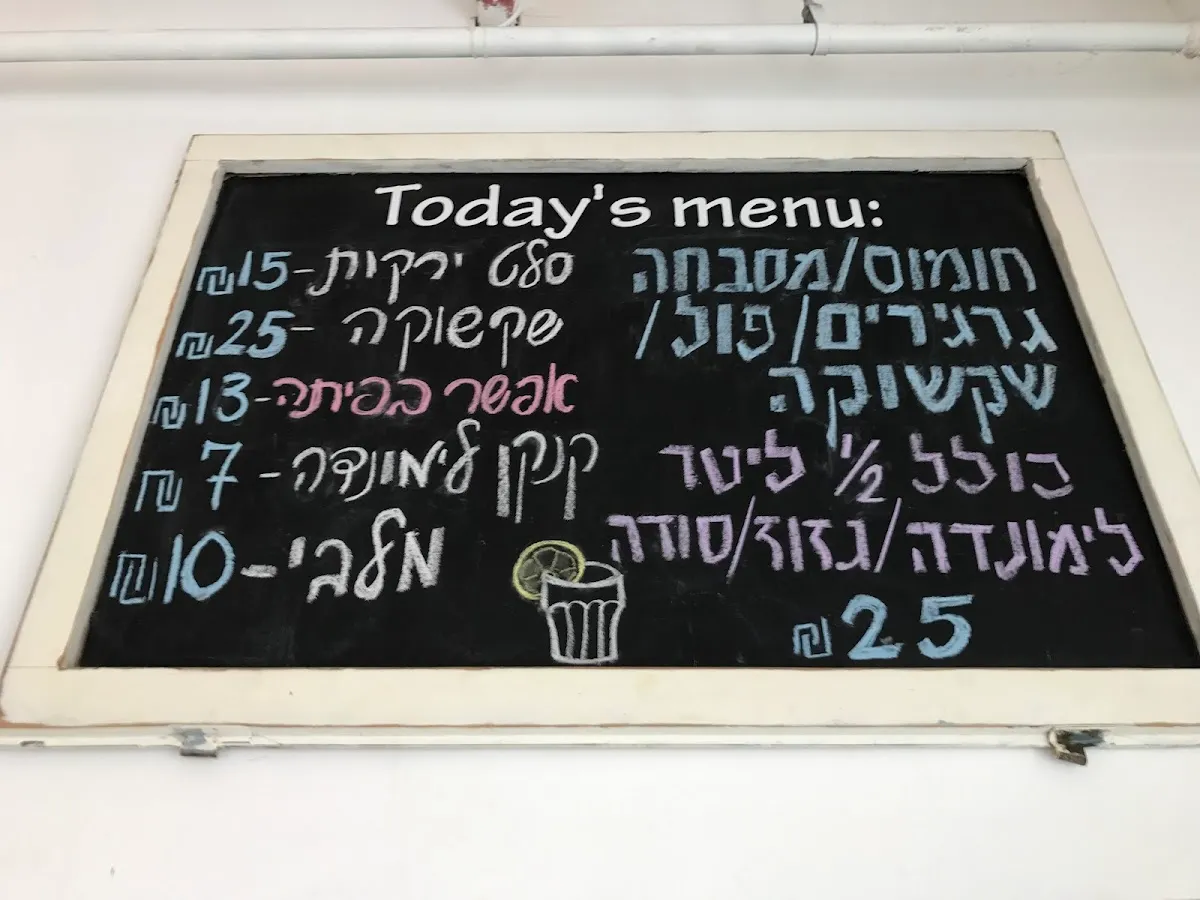 Today's menu:
חומוס/מסבחה
גרגירים/פול/
שקשוקה
כולל 1/2 ליטר
לימונדה/גזוז/סודה
25 ₪
סלט ירקות - 15 ₪
שקשוקה - 25 ₪
אפשר בפיתה - 13 ₪
קנקן לימונדה - 7 ₪
מלבי - 10 ₪